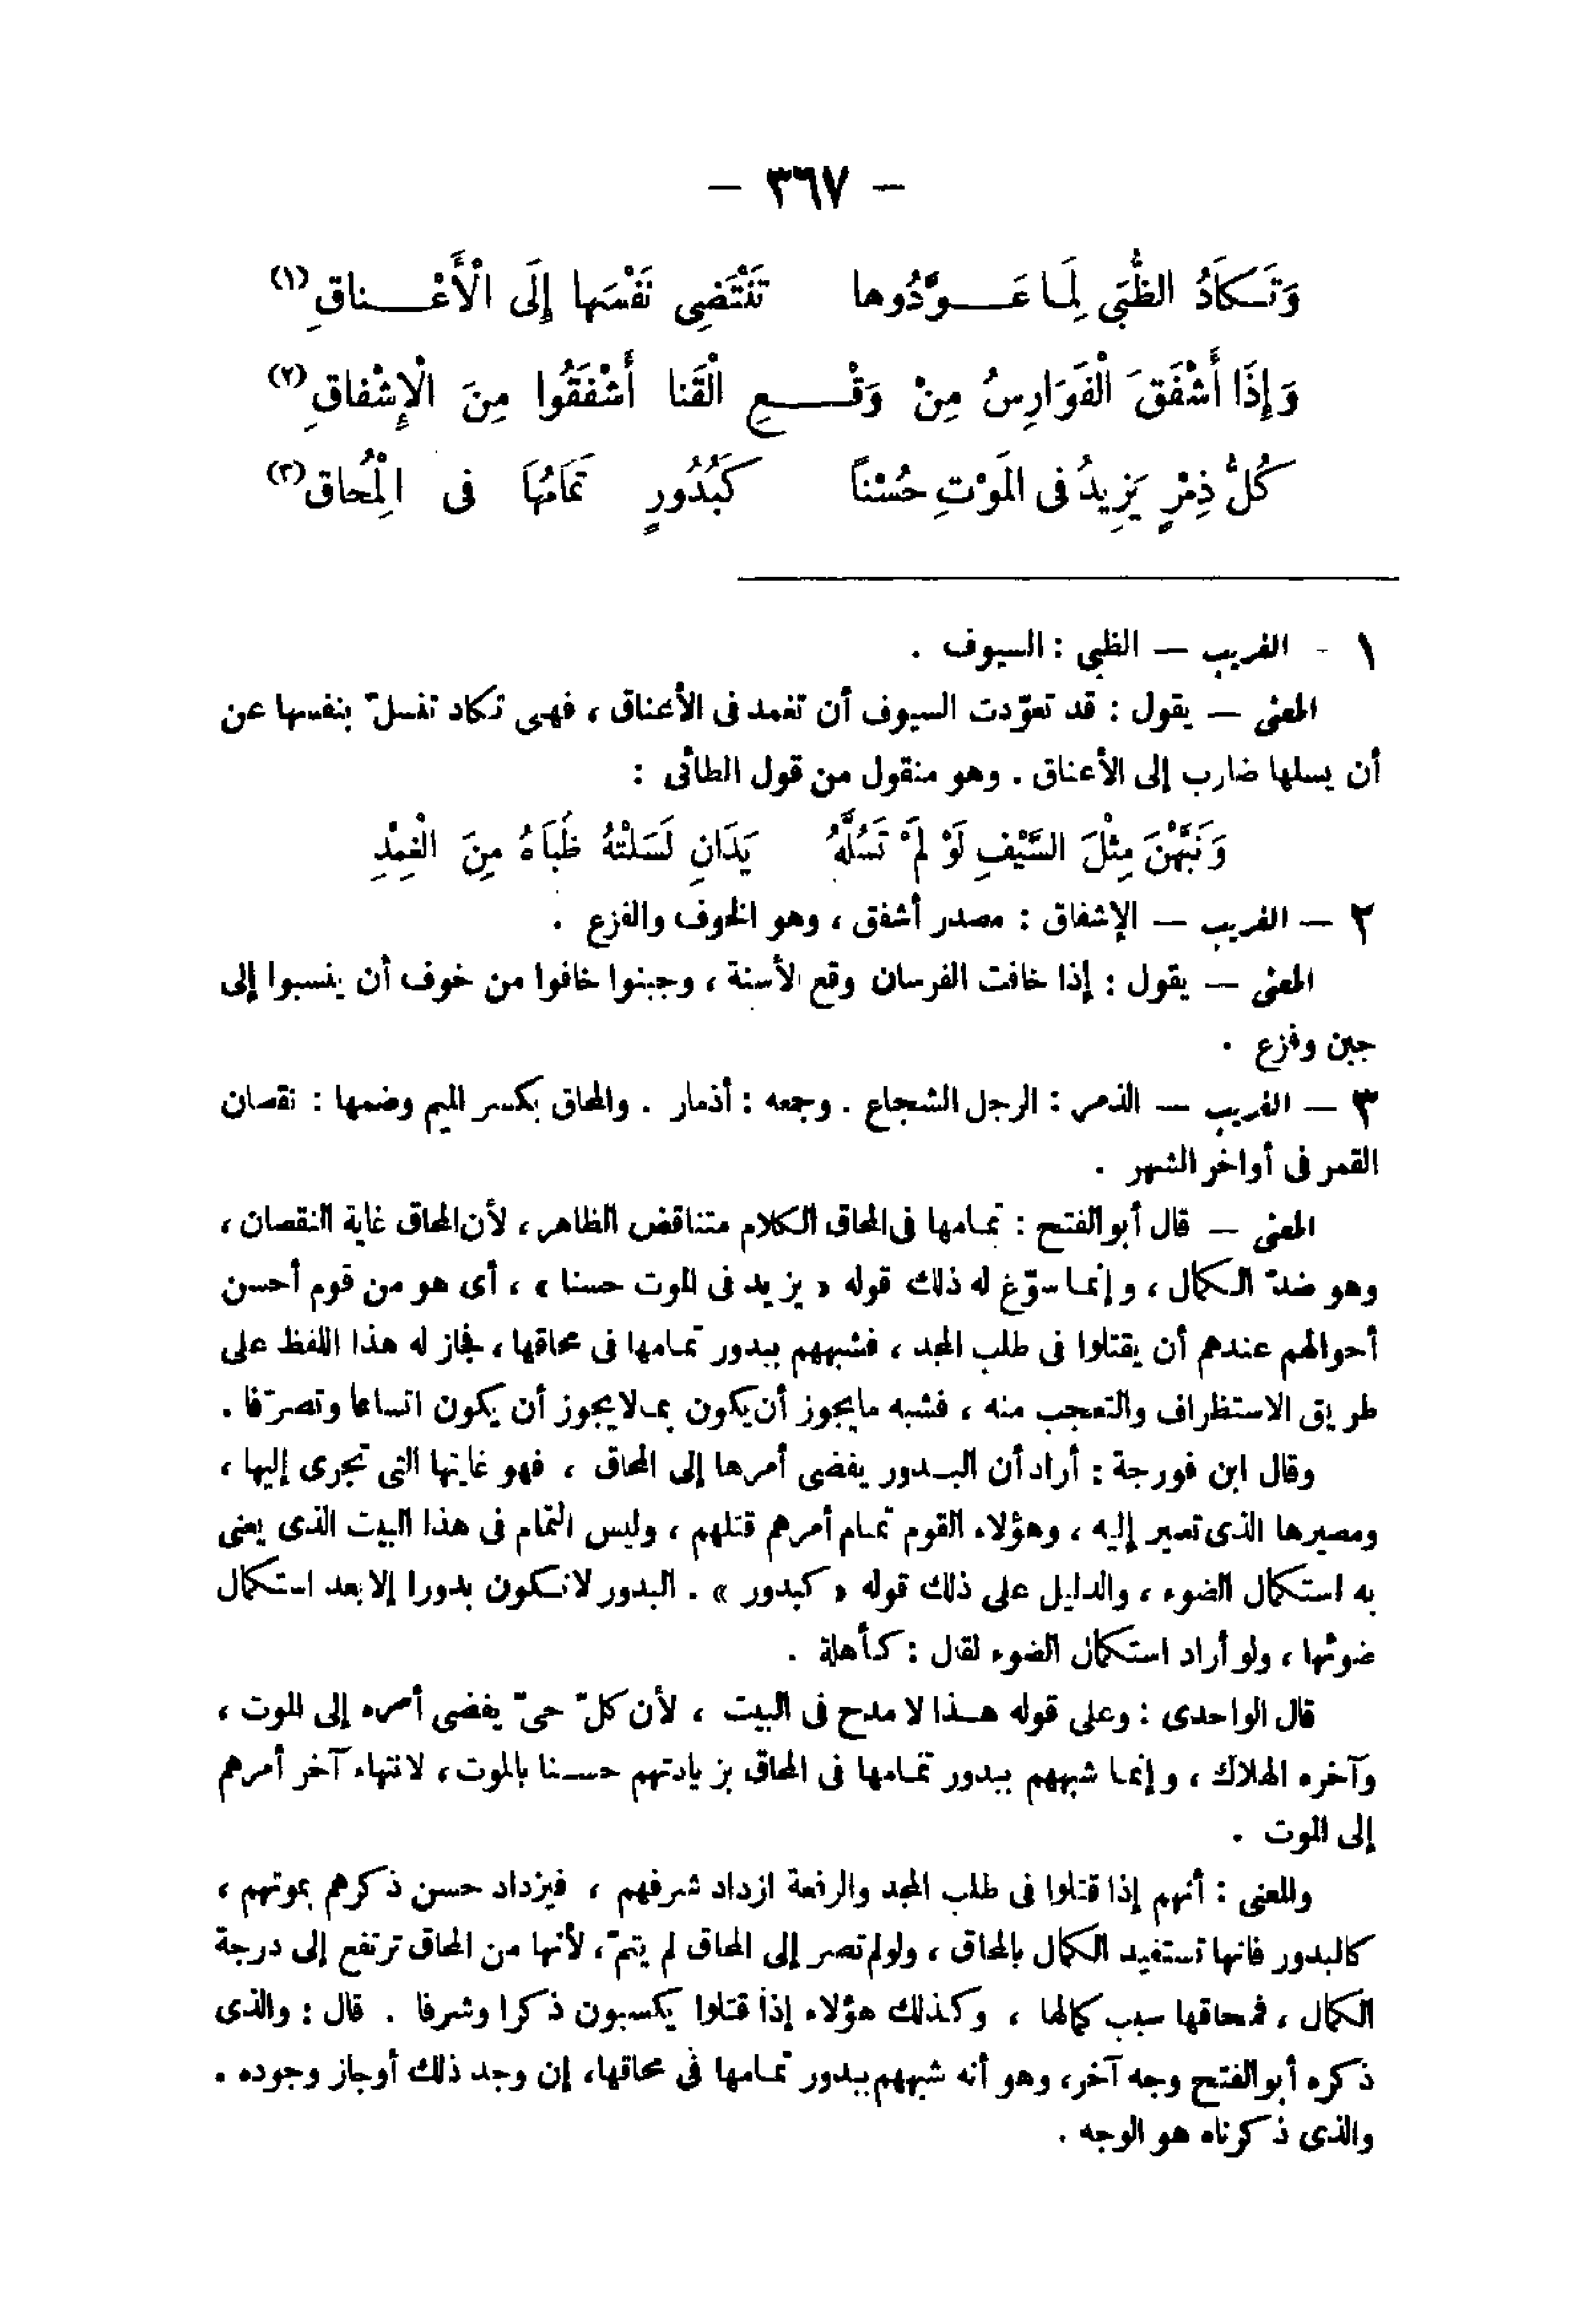 — ٣٦٧ —
وَتَكَادُ الظُّبَى لِمَا عَوَّدُوها تَنْتَضِى نَفْسَها إِلَى الْأَعْناقِ (١)
وَإِذَا أَشْفَقَ الْفَوَارِسُ مِنْ وَقْعِ الْقَنا أَشْفَقُوا مِنَ الْإِشْفاقِ (٢)
كُلُّ ذِمْرٍ يَزِيدُ فى المَوْتِ حُسْناً كَبُدُورٍ تَمَامُهَا فى الْمِحاقِ (٣)
١ - الغريب — الظبى : السيوف .
المعنى — يقول : قد تعوّدت السيوف أن تغمد فى الأعناق ، فهى تكاد تفسلّ بنفسها عن
أن يسلها ضارب إلى الأعناق . وهو منقول من قول الطائى :
وَنَبَّهْنَ مِثْلَ السَّيْفِ لَوْ لَمْ تَسُلَّهُ يَدَانِ لَسَلَتْهُ ظُبَاهُ مِنَ الْغِمْدِ
٢ — الغريب — الإشفاق : مصدر أشفق ، وهو الخوف والفزع .
المعنى — يقول : إذا خافت الفرسان وقع الأسنة ، وجبنوا خافوا من خوف أن ينسبوا إلى
جبن وفزع .
٣ — الغريب — الذمر : الرجل الشجاع . وجمعه : أذمار . والمحاق بكسر الميم وضمها : نقصان
القمر فى أواخر الشهر .
المعنى — قال أبو الفتح : تمامها فى المحاق الكلام متناقض الظاهر ، لأن المحاق غاية النقصان ،
وهو ضدّ الكمال ، وإنما سوّغ له ذلك قوله « يزيد فى الموت حسنا » ، أى هو من قوم أحسن
أحوالهم عندهم أن يقتلوا فى طلب المجد ، فشبههم ببدور تمامها فى محاقها ، فجاز له هذا اللفظ على
طريق الاستظراف والتعجب منه ، فشبه مايجوز أن يكون بما لا يجوز أن يكون اتساعا وتصرّفا .
وقال ابن فورجة : أراد أن البدور يفضى أمرها إلى المحاق ، فهو غايتها التى تجرى إليها ،
ومصيرها الذى تصير إليه ، وهؤلاء القوم تمام أمرهم قتلهم ، وليس التمام فى هذا البيت الذى يعنى
به استكمال الضوء ، والدليل على ذلك قوله « كبدور » . البدور لاتكون بدورا إلا بعد استكمال
ضوئها ، ولو أراد استكمال الضوء لقال : كأهلة .
قال الواحدى : وعلى قوله هذا لا مدح فى البيت ، لأن كلّ حىّ يفضى أمره إلى الموت ،
وآخره الهلاك ، وإنما شبههم ببدور تمامها فى المحاق بزيادتهم حسنا بالموت ، لا نتهاء آخر أمرهم
إلى الموت .
والمعنى : أنهم إذا قتلوا فى طلب المجد والرفعة ازداد شرفهم ، فيزداد حسن ذكرهم بموتهم ،
كالبدور فانها تستفيد الكمال بالمحاق ، ولولم تصر إلى المحاق لم يتمّ ، لأنها من المحاق ترتفع إلى درجة
الكمال ، فمحاقها سبب كمالها ، وكذلك هؤلاء إذا قتلوا يكسبون ذكرا وشرفا . قال : والذى
ذكره أبو الفتح وجه آخر ، وهو أنه شبههم ببدور تمامها فى محاقها ، إن وجد ذلك أوجاز وجوده .
والذى ذكرناه هو الوجه .